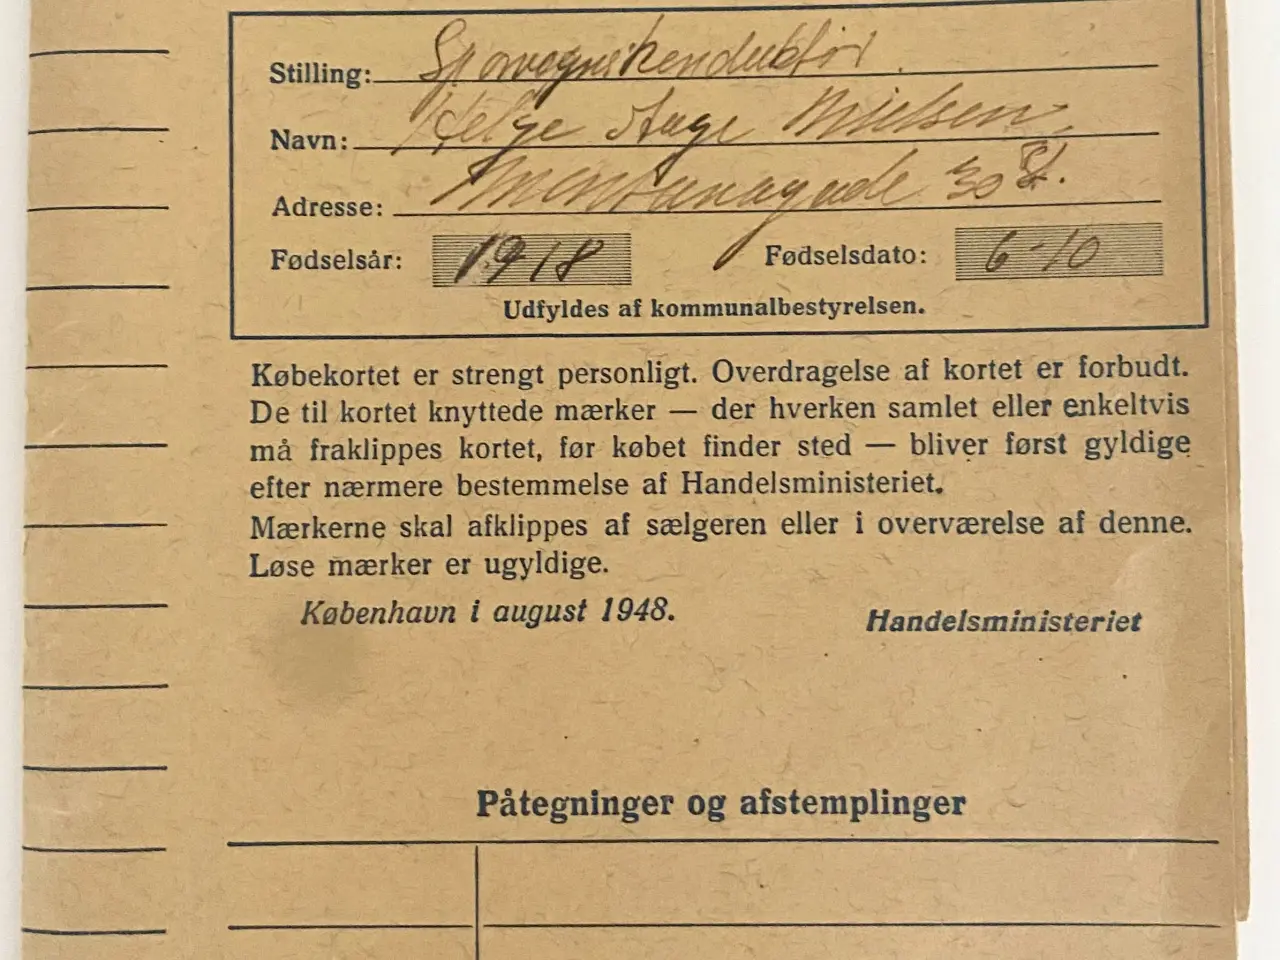 Stilling: Sporvognskonduktør.
Navn: Helge Aage Nielsen.
Adresse: Montanagade 30 St.
Fødselsår: 1918 Fødselsdato: 6-10
Udfyldes af kommunalbestyrelsen.
Købekortet er strengt personligt. Overdragelse af kortet er forbudt.
De til kortet knyttede mærker — der hverken samlet eller enkeltvis
må fraklippes kortet, før købet finder sted — bliver først gyldige
efter nærmere bestemmelse af Handelsministeriet.
Mærkerne skal afklippes af sælgeren eller i overværelse af denne.
Løse mærker er ugyldige.
København i august 1948. Handelsministeriet
Påtegninger og afstemplinger